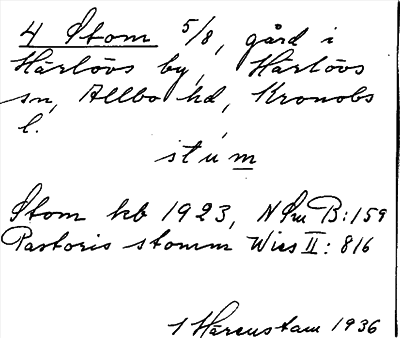 4 Stom 5/8, gård i
Härlövs by, Härlövs
sn, Allbo hd, Kronobs
l.
stu´m
Stom kb 1923, NSm B:159
Pastoris stomm Wies II: 816
1 Hårenstam 1936